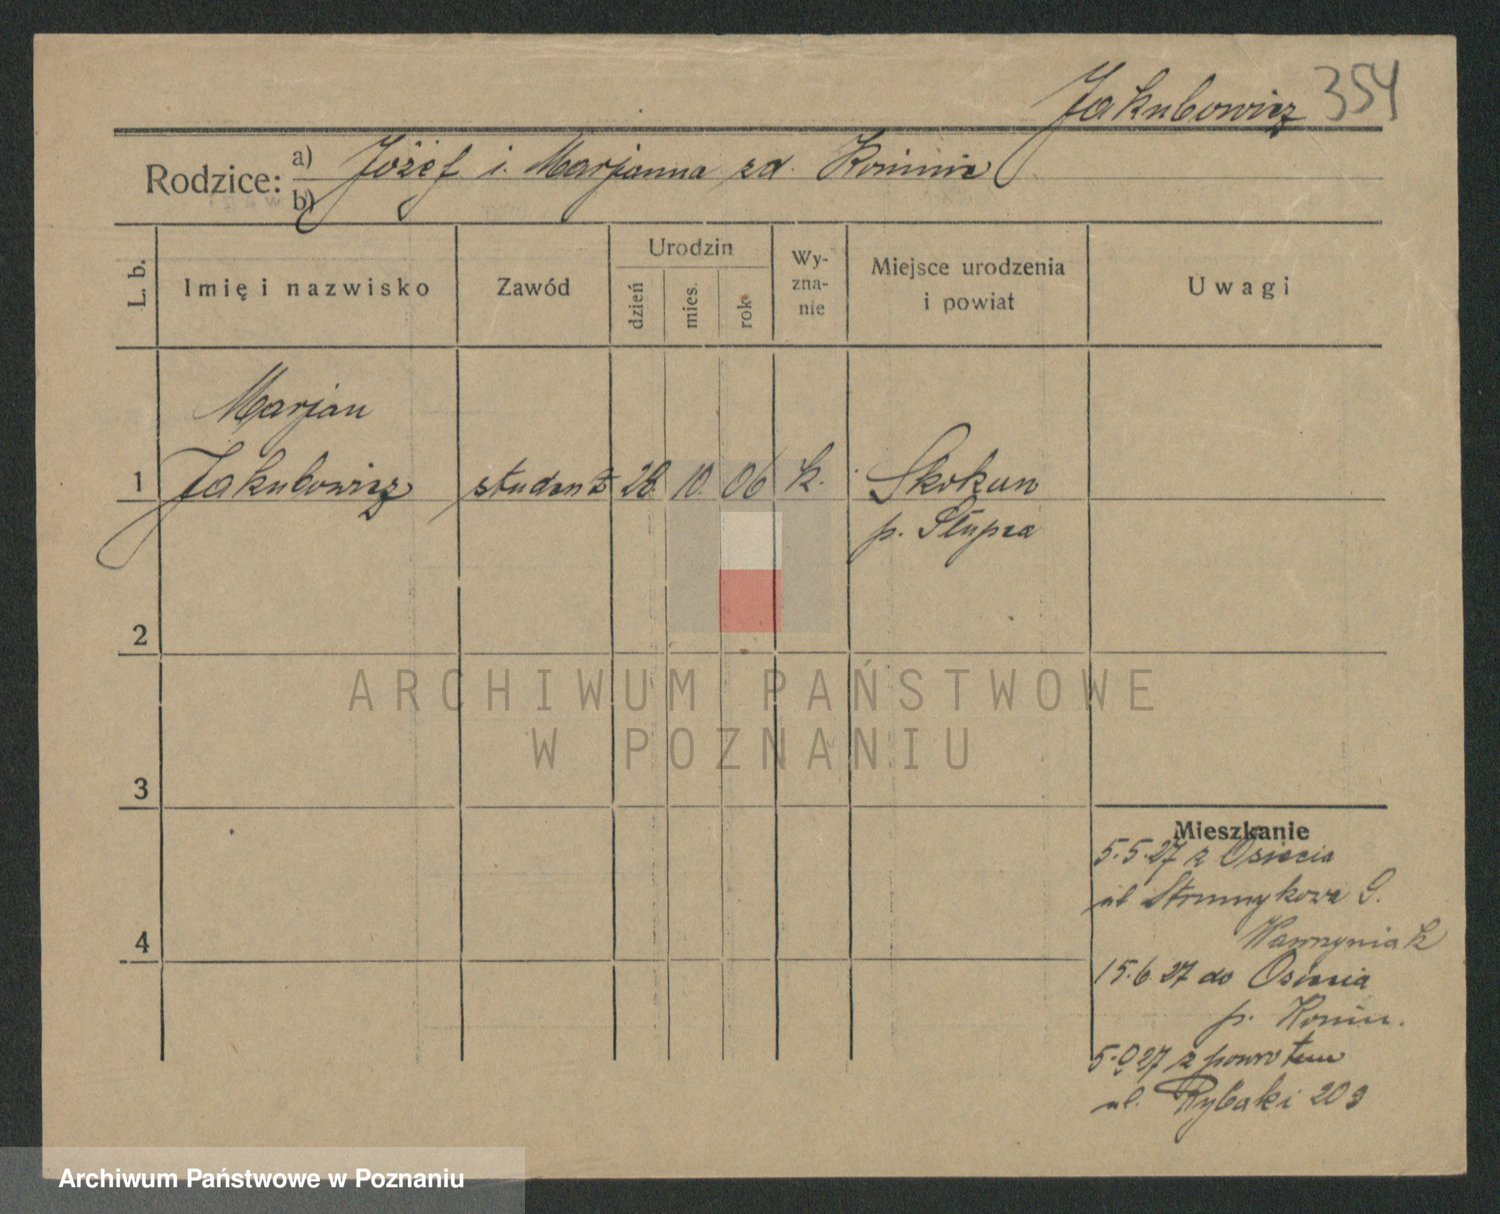 Jakubowicz 354
Rodzice: a) Józef i Marjanna zd.
b)
L. b.
Imię i nazwisko
Zawód
Urodzin
dzień
mies.
rok
Wy-
zna-
nie
Miejsce urodzenia
i powiat
Uwagi
Marjan
1 Jakubowicz student 28. 10. 06 k. Skokun
p. Słupca
2
ARCHIWUM PAŃSTWOWE
W POZNANIU
3
Mieszkanie
5.5.27 z Osiecia
ul 9.
Wawrzyniak
4
15.6 27 do Osiecia
p. Konin.
5.9 27 z powrotem
ul. Rybaki 20
Archiwum Państwowe w Poznaniu